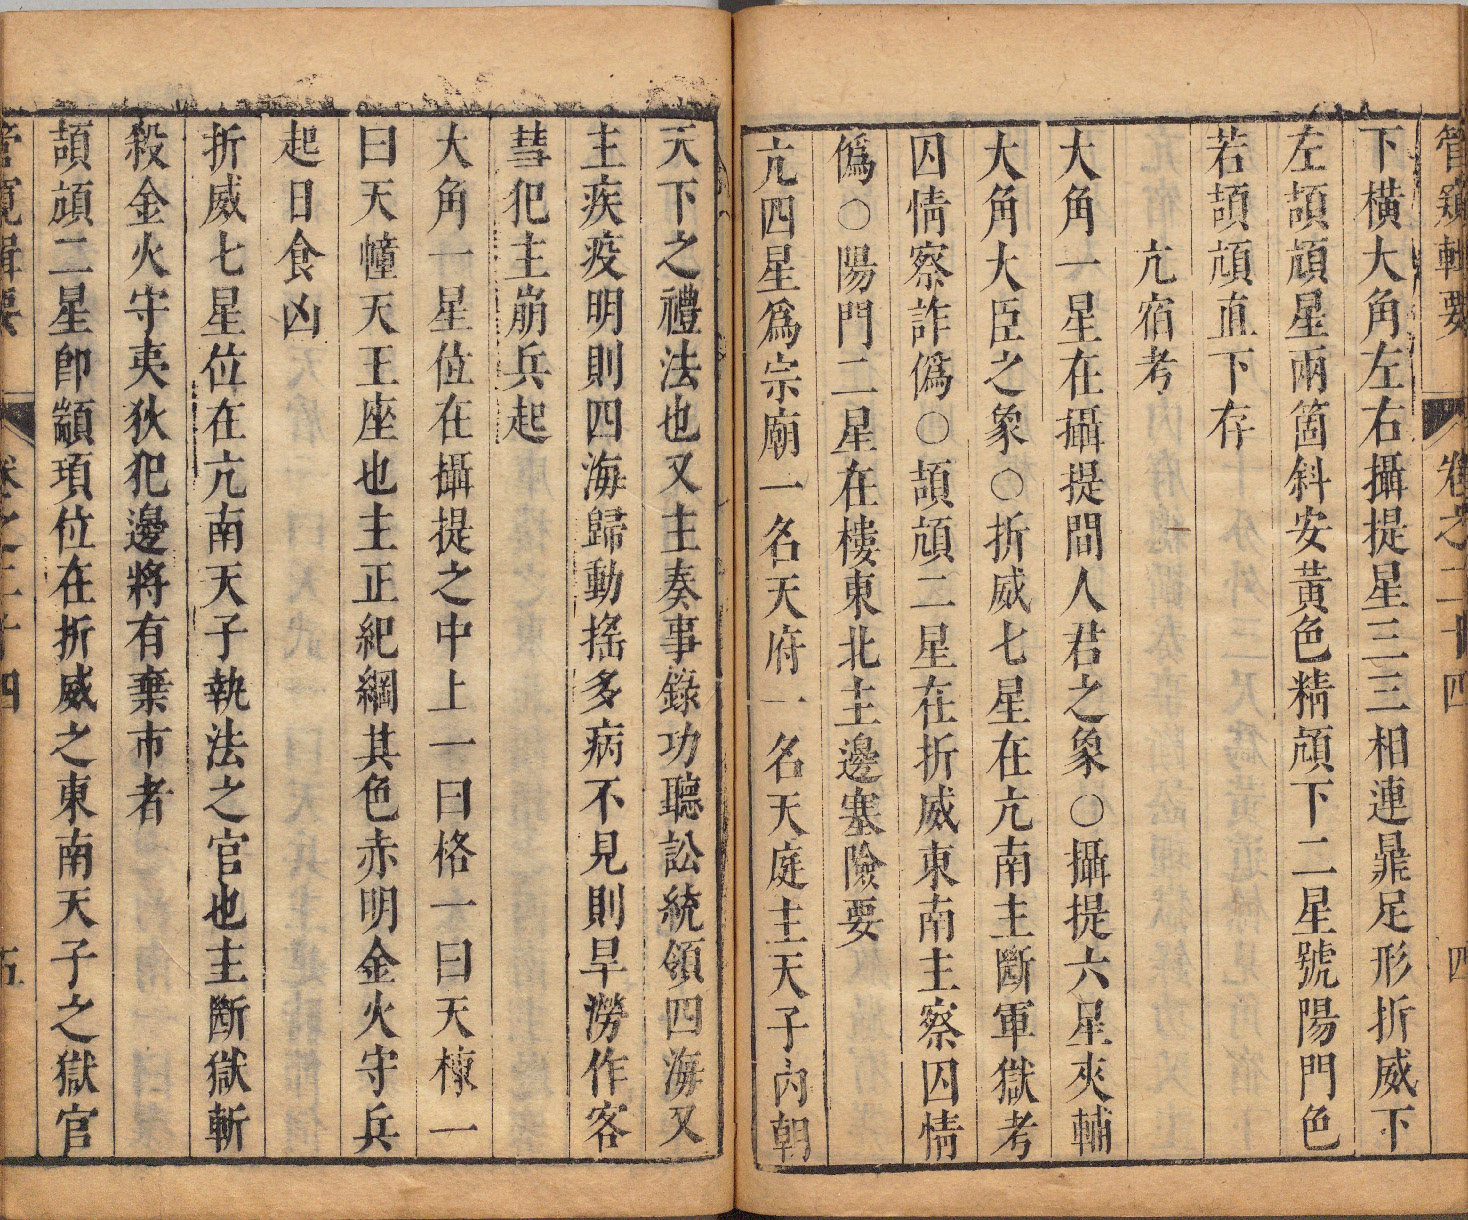 管窺輯要 卷之二十四 四
下橫大角左右攝提星三三相連鼎足形折威下
左頡頏星兩箇斜安黃色精頏下二星號陽門色
若頡頏直下存
亢宿考
大角一星在攝提間人君之象○攝提六星夾輔
大角大臣之象○折威七星在亢南主斷軍獄考
囚情察詐僞○頡頏二星在折威東南主察囚情
僞○陽門二星在樓東北主邊塞險要
亢四星爲宗廟一名天府一名天庭主天子內朝
天下之禮法也又主奏事錄功聽訟統領四海又
主疾疫明則四海歸動搖多病不見則旱澇作客
彗犯主崩兵起
大角一星位在攝提之中上一曰格一曰天棟一
曰天幢天王座也主正紀綱其色赤明金火守兵
起日食凶
折威七星位在亢南天子執法之官也主斷獄斬
殺金火守夷狄犯邊將有棄市者
頡頏二星即顓頊位在折威之東南天子之獄官
管窺輯要 卷之二十四 五